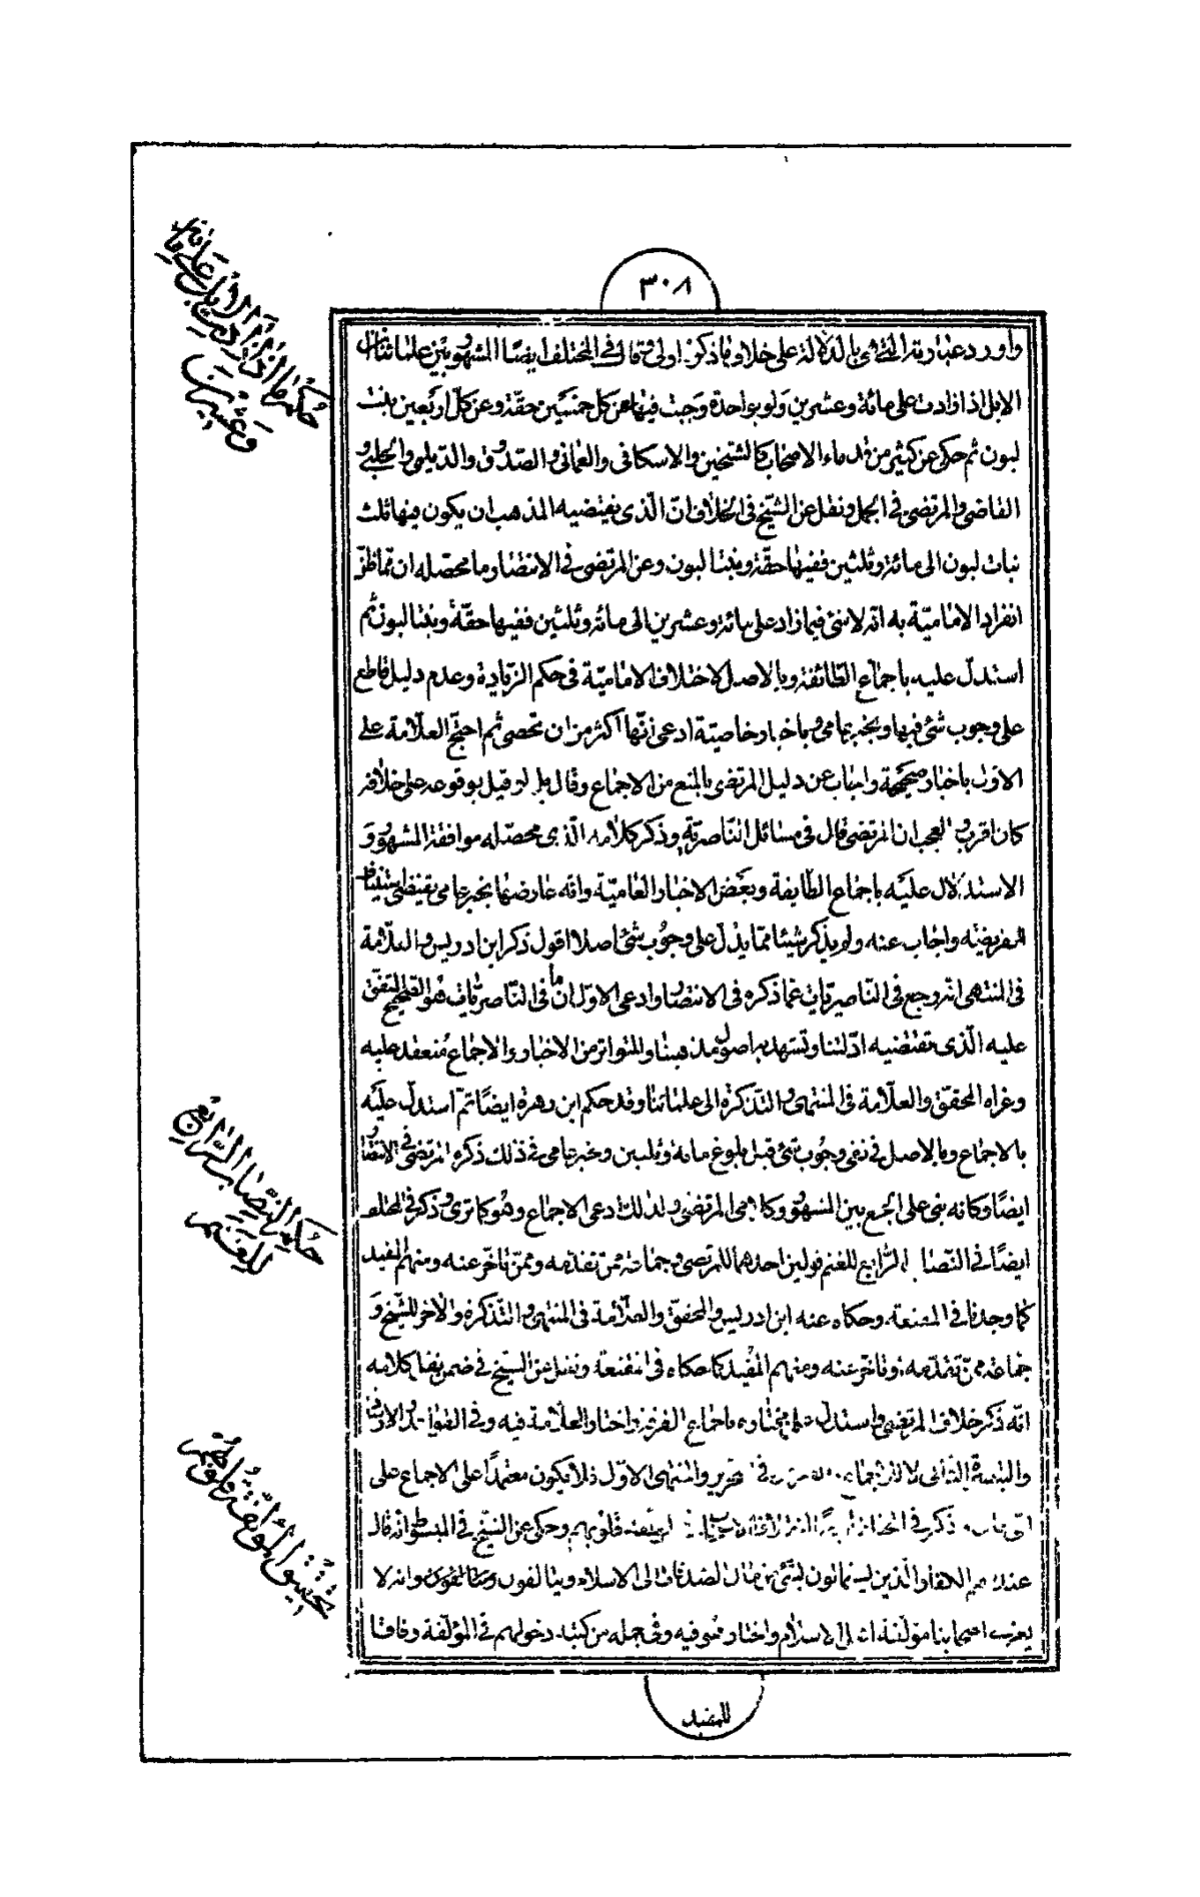 ٣٠٨
واورد عبارته التى هى بالدلالة على خلاف ما ذكره اولى وقال فى المختلف ايضًا المشهور بين علمائنا ان
الابل اذا زادت على مائة وعشرين ولو بواحدة وجبت فيها عن كل خمسين حقة وعن كل اربعين بنت
لبون ثم حكى عن كثير من قدماء الاصحاب كالشيخين والاسكافى والعمانى والصدوق والديلمى والحلبى و
القاضى والمرتضى فى الجمل ونقل عن الشيخ فى الخلاف ان الذى يقتضيه المذهب ان يكون فيها ثلث
بنات لبون الى مائة وثلثين ففيها حقة وبنتا لبون وعن المرتضى فى الانتصار ما محصله ان مما ظن
انفراد الامامية به انه لا شئ فيما زاد على مائة وعشرين الى مائة وثلثين ففيها حقة وبنتا لبون ثم
استدل عليه باجماع الطائفة وبالاصل لاختلاف الامامية فى حكم الزيادة وعدم دليل قاطع
على وجوب شئ فيها وبخبر عامى وباخبار خاصية ادعى انها اكثر من ان تحصى ثم احتج العلامة على
الاول باخبار صحيحة واجاب عن دليل المرتضى بالمنع من الاجماع وقال بل لو قيل بوقوعه على خلافه
كان اقرب و العجب ان المرتضى قال فى مسائل الناصرية وذكر كلامه الذى محصله موافقة المشهور و
الاستدلال عليه باجماع الطايفة وبعض الاخبار العامية وانه عارضها بخبر عامى يقتضى استيناف
الفريضة واجاب عنه ولم يذكر شيئا مما يدل على وجوب شئ اصلا اقول ذكر ابن ادريس والعلامة
فى المنتهى انه رجع فى الناصريات عما ذكره فى الانتصار وادعى الاول ان ما فى الناصريات هو الصحيح المتفق
عليه الذى تقتضيه ادلتنا وتشهد به اصول مذهبنا والمتواتر من الاخبار والاجماع منعقد عليه
وعزاه المحقق والعلامة فى المنتهى والتذكرة الى علمائنا وقد حكم ابن زهرة ايضًا ثم استدل عليه
بالاجماع وبالاصل فى نفى وجوب شئ قبل بلوغ مائة وثلثين وخبر عامى فى ذلك ذكره المرتضى فى الانتصار
ايضًا وكانه بنى على الجمع بين المشهور وكلامى المرتضى ولذلك ادعى الاجماع وهو كما ترى وذكر فى المختلف
ايضًا فى النصاب الرابع للغنم قولين احدهما للمرتضى وجماعة ممن تقدمه وممن تاخر عنه ومنهم المفيد
كما وجدنا فى المقنعة وحكاه عنه ابن ادريس والمحقق والعلامة فى المنتهى والتذكرة والاخر للشيخ و
جماعة ممن تقدمه وتاخر عنه ومنهم المفيد كما حكاه فى المقنعة ونقل عن الشيخ فى ضمن نقل كلامه
انه ذكر خلاف المرتضى واستدل على مختاره باجماع الفرقة واختار العلامة فيه وفى
على
ذكر فى قلوبهم وحكى عن الشيخ فى المبسوط انه قال
عندنا هم الكفار الذين يستمالون بشئ من مال الصدقات الى الاسلام ويتالفون وانه لا
يعرف اصحابنا مؤلفة اهل الاسلام واختار هو فيه وفى جملة من كتبه دخولهم فى المؤلفة وفاقا
للمفيد
حكم ما اذا زاد الابل على مائة
وعشرين
حكم النصاب الرابع
للغنم
تحقيق المؤلفة قلوبهم